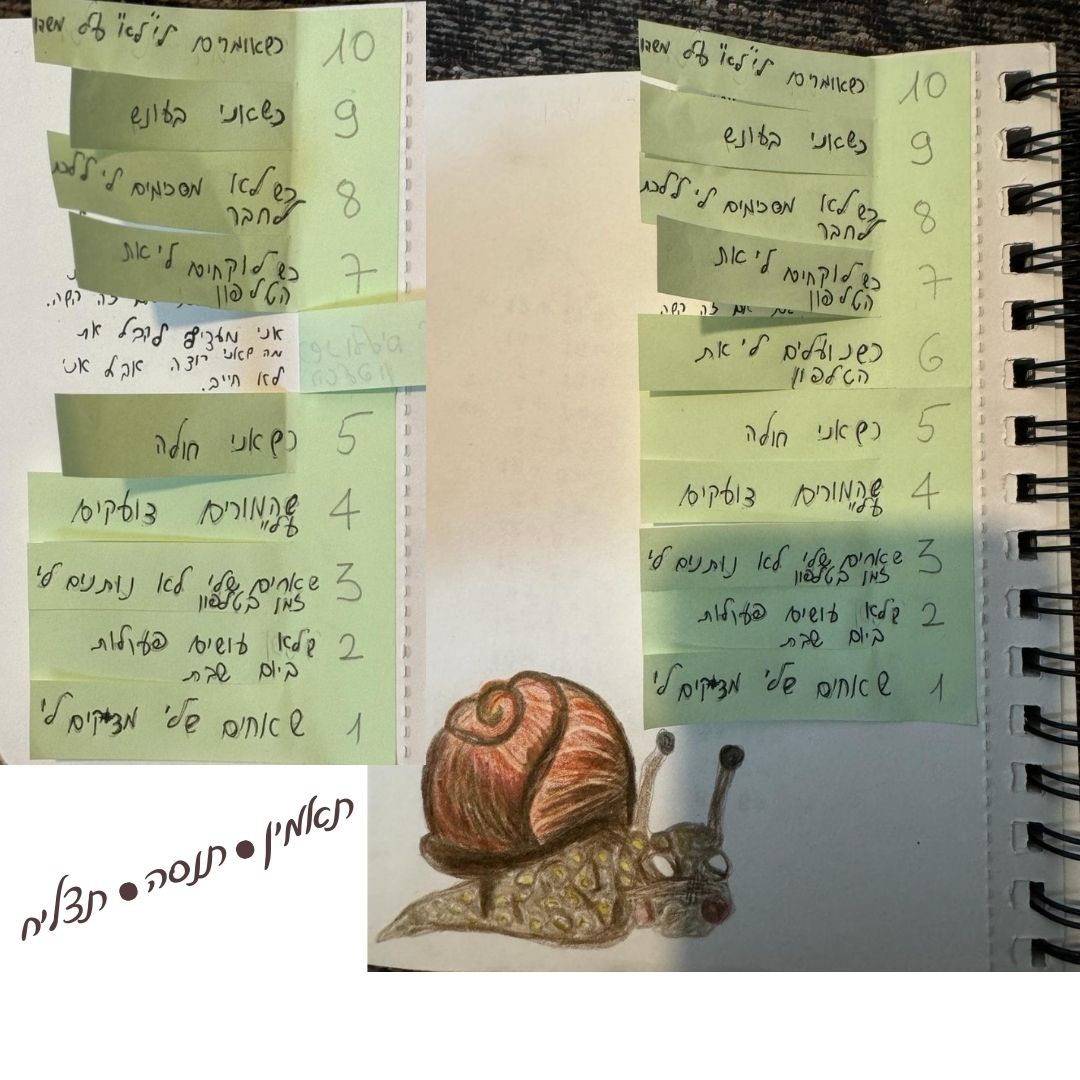 כשאומרים לי "לא" על משהו 10
כשאני בעונש 9
כשלא מסכימים לי ללכת 8
לחבר
כשלוקחים לי את 7
הטלפון
זה קשה.
אני מעדיף לקבל את
מה שאני רוצה אבל אני
לא חייב.
כשאני חולה 5
שהמורים צועקים 4
עליי
שאחים שלי לא נותנים לי 3
זמן בטלפון
שלא עושים פעולות 2
ביום שבת
שאחים שלי מציקים לי 1
כשאומרים לי "לא" על משהו 10
כשאני בעונש 9
כשלא מסכימים לי ללכת 8
לחבר
כשלוקחים לי את 7
הטלפון
זה קשה
כשנועלים לי את 6
הטלפון
כשאני חולה 5
שהמורים צועקים 4
עליי
שאחים שלי לא נותנים לי 3
זמן בטלפון
שלא עושים פעולות 2
ביום שבת
שאחים שלי מציקים לי 1
תאמין • תנסה • תצליח